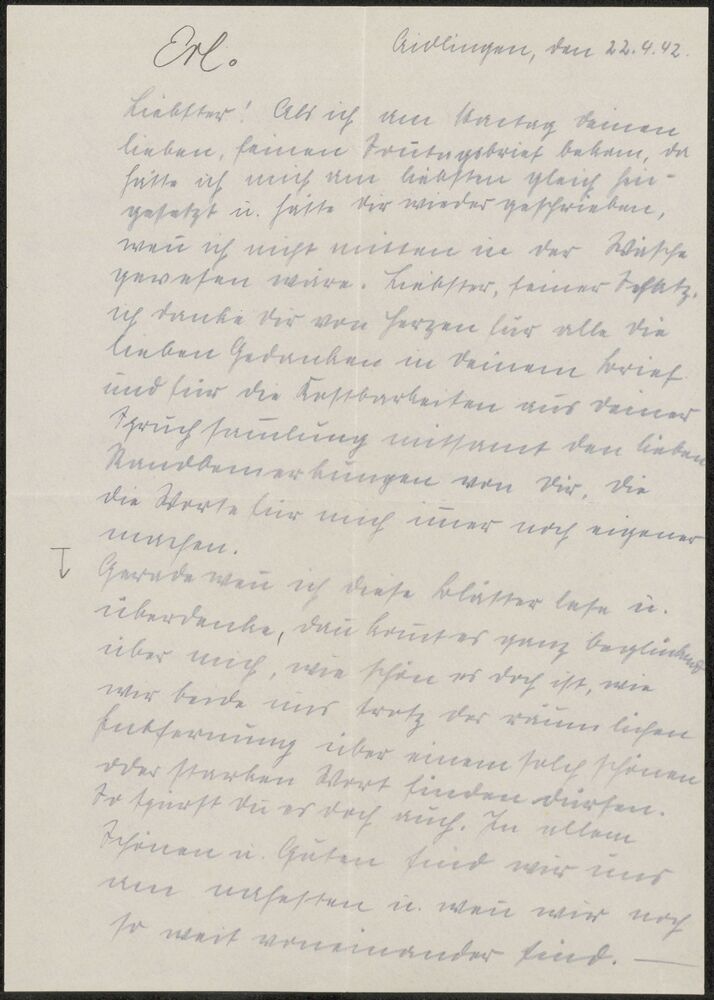 Erl.
Aidlingen, den 22.4.42.
Liebster! Als ich am Montag deinen
lieben, feinen Sonntagsbrief bekam, da
hätte ich mich am liebsten gleich hin-
gesetzt u. hätte dir wieder geschrieben,
wen̄ ich nicht mitten in der Wäsche
gewesen wäre. Liebster, feiner Schatz,
ich danke dir von Herzen für alle die
lieben Gedanken in deinem Brief
und für die Kostbarkeiten aus deiner
Spruchsam̄lung mitsamt den lieben
Randbemerkungen von dir, die
die Worte für mich im̄er noch eigener
machen.
Gerade wen̄ ich diese Blätter lese u.
überdenke, dan̄ kom̄t es ganz beglückend
über mich, wie schön es doch ist, wie
wir beide uns trotz der räumlichen
Entfernung über einem solch schönen
oder starken Wort finden dürfen.
So spürst du es doch auch. In allem
Schönen u. Guten sind wir uns
am nahesten u. wen̄ wir noch
so weit voneinander sind. —